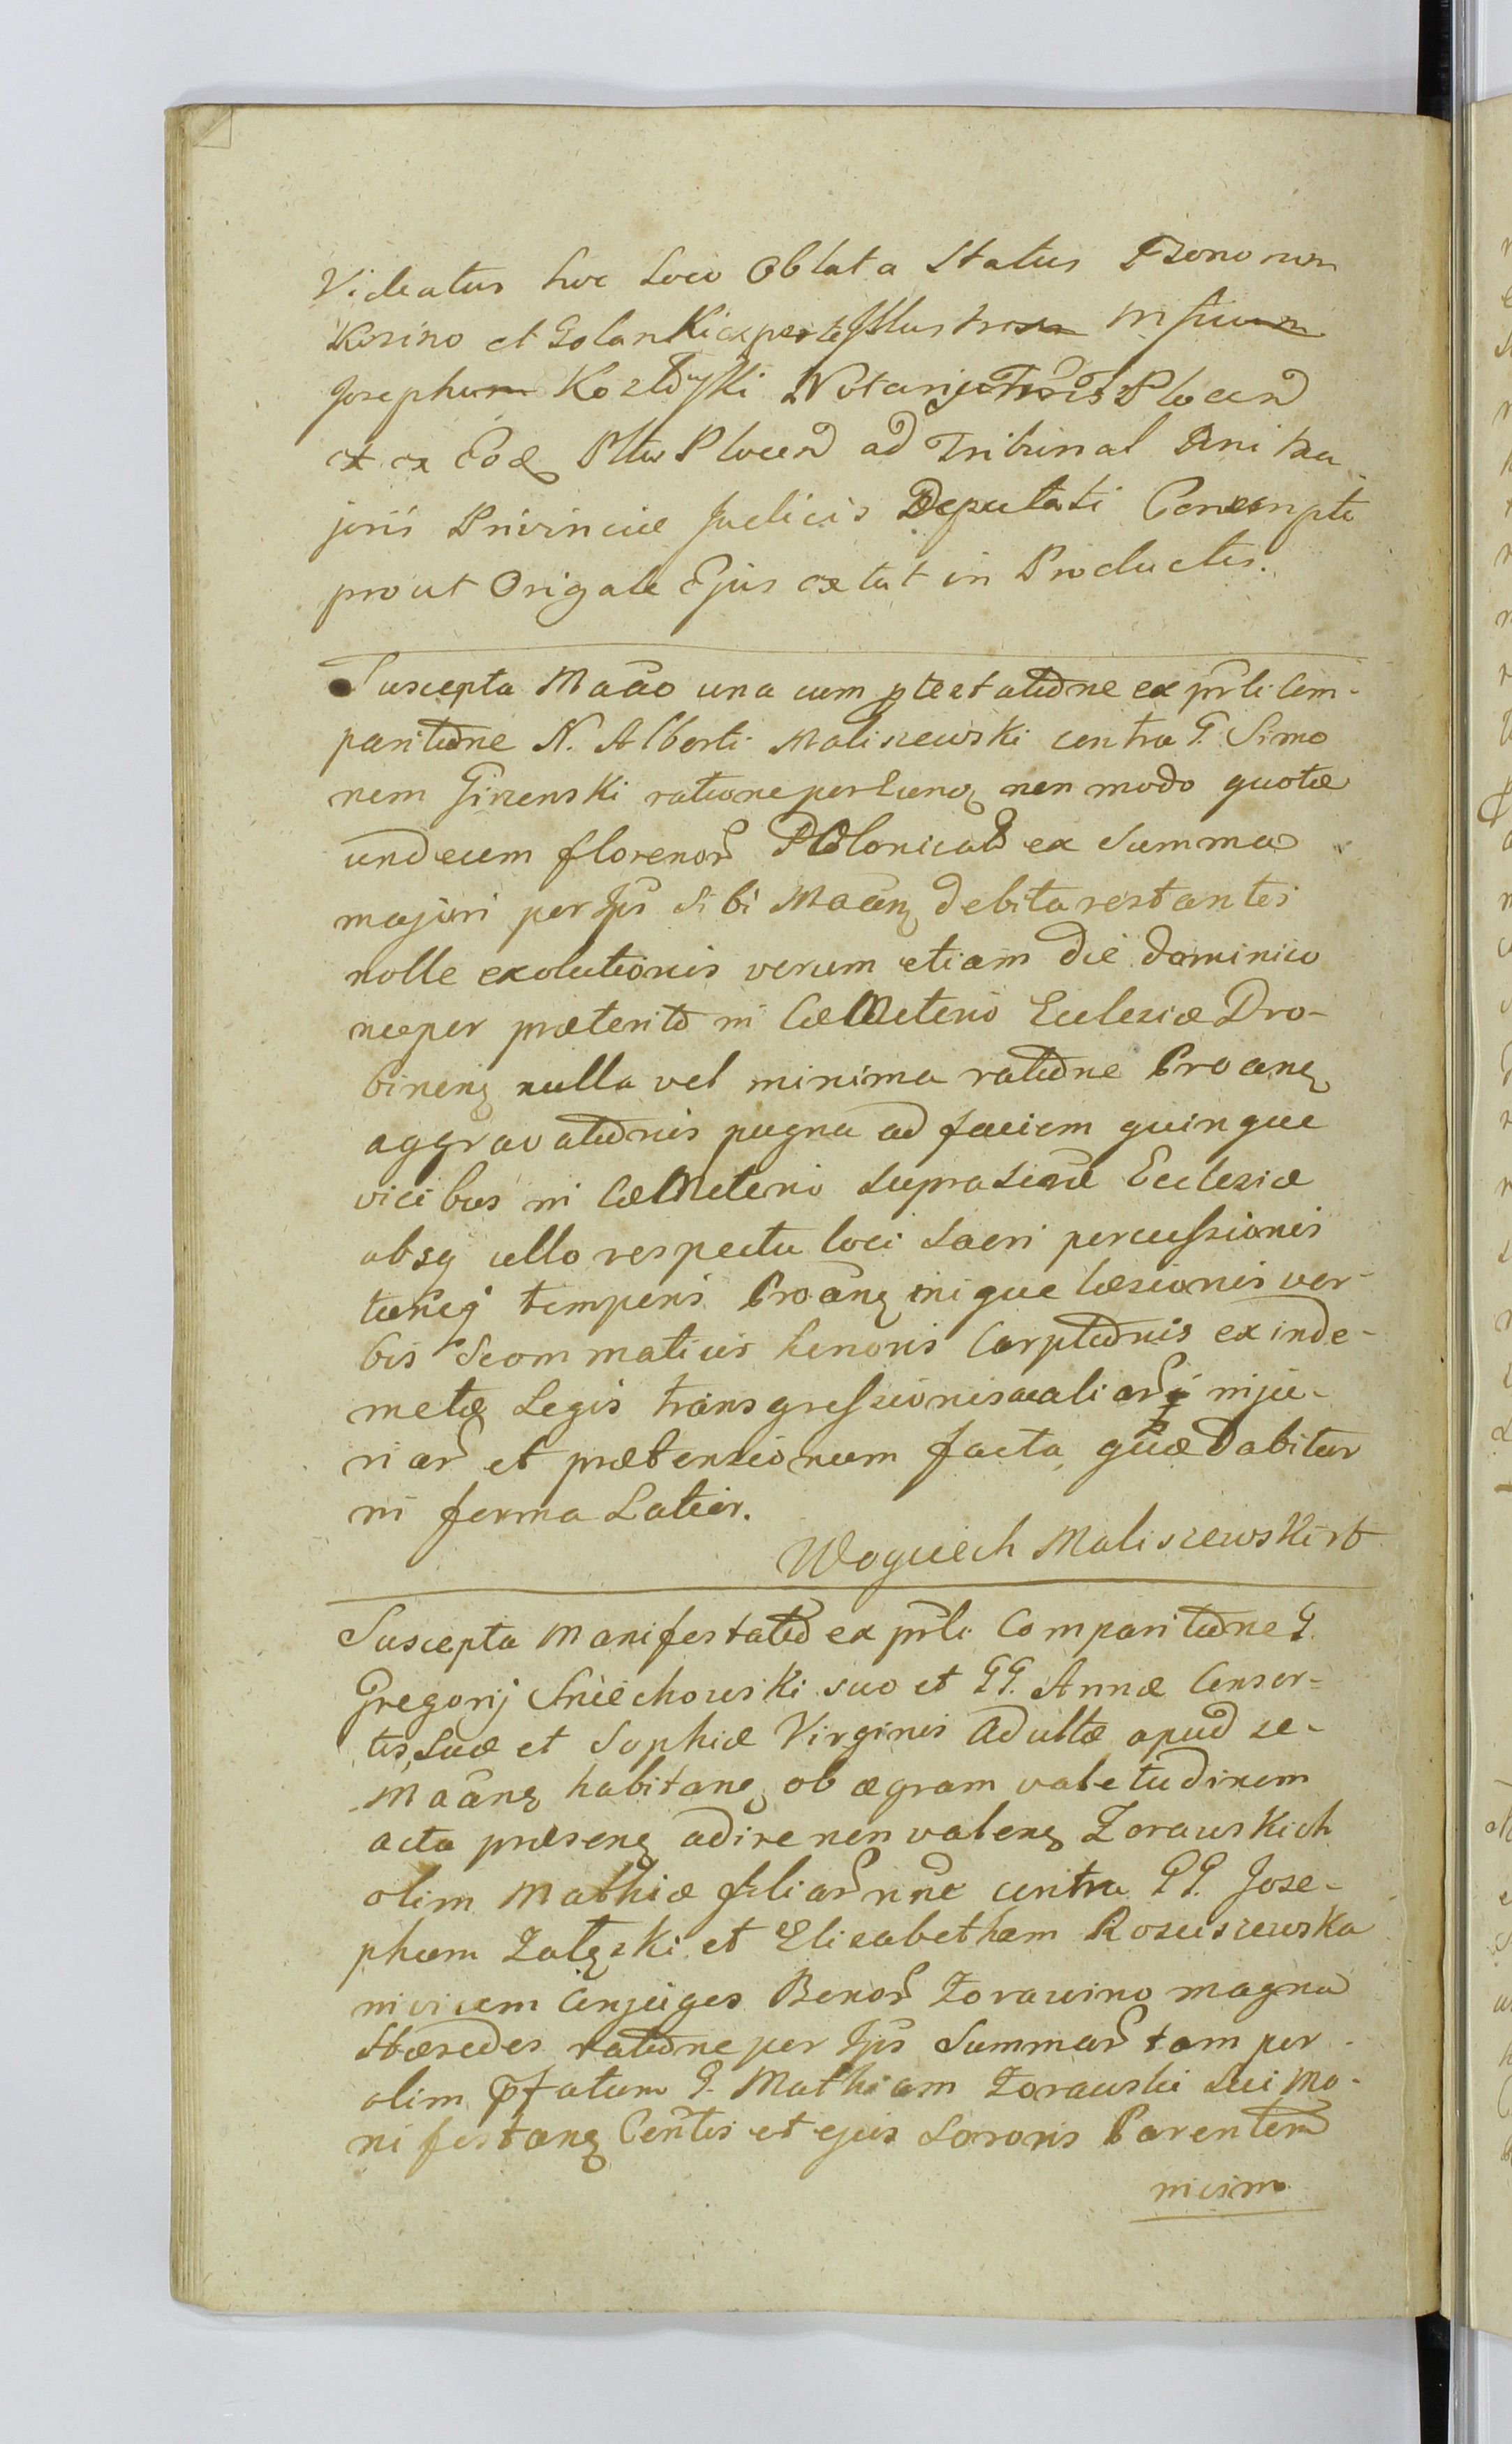 Videatur hoc loco Oblata Status Bonorum
Krsino et Golanki ex parte Illustrem
Josephum Kozłowski Notarij Plocen
et ex Eoq Pltu Plocen ad Tribunal Rni Ma-
joris Provinciæ Judicis Deputati Conscripti
prout Origale Ejus extat in Productis.
Suscepta Maão una cum ptestatione ex prli Com-
paritione N. Alberti Maliszewski contra G. Simo
nem Girzenski ratione per Eund non modo quotæ
undecim florenor Polonical ex Summa
majori per Ips Sibi Maanz debita restantis
nolle exolutionis verum etiam die dominico
nuper præterito in Cæmeterio Ecclesiæ Dro-
binenz nulla vel minima ratione Proanz
aggravationis pugna ad faciem quinque
vicibus in Cæmeterio supra Ecclesiæ
absq ullo respectu loci Sacri percussionis
tuncq temporis Proanz inique læsionis ver-
bis Scommaticis honoris Carptionis exinde-
metq Legis transgressionis aliar inju-
riar et prætensionum facta, quæ Dabitur
in forma Latior.
Woyciech Maliszewski
Suscepta Manifestatio ex prli Comparitione G.
Gregorij Sniechowski suo et GG. Annæ Consor-
tis Suæ et Sophiæ Virginis Adultæ apud se-
Maanz habitanz ob ægram valetudinem
acta præsenz adire non valenz Zorawskich
olim Mathiæ filiar nne contra GG. Jose-
phum Załęski et Elisabetham Rosciszewska
invicem Conjuges Bonor Zorawino magna
Hæredes ratione per Ips Summar tam per
olim pfatum G. Mathiam Zorawski Sui Ma-
nifestanz Contis et ejus Sororis Parentem